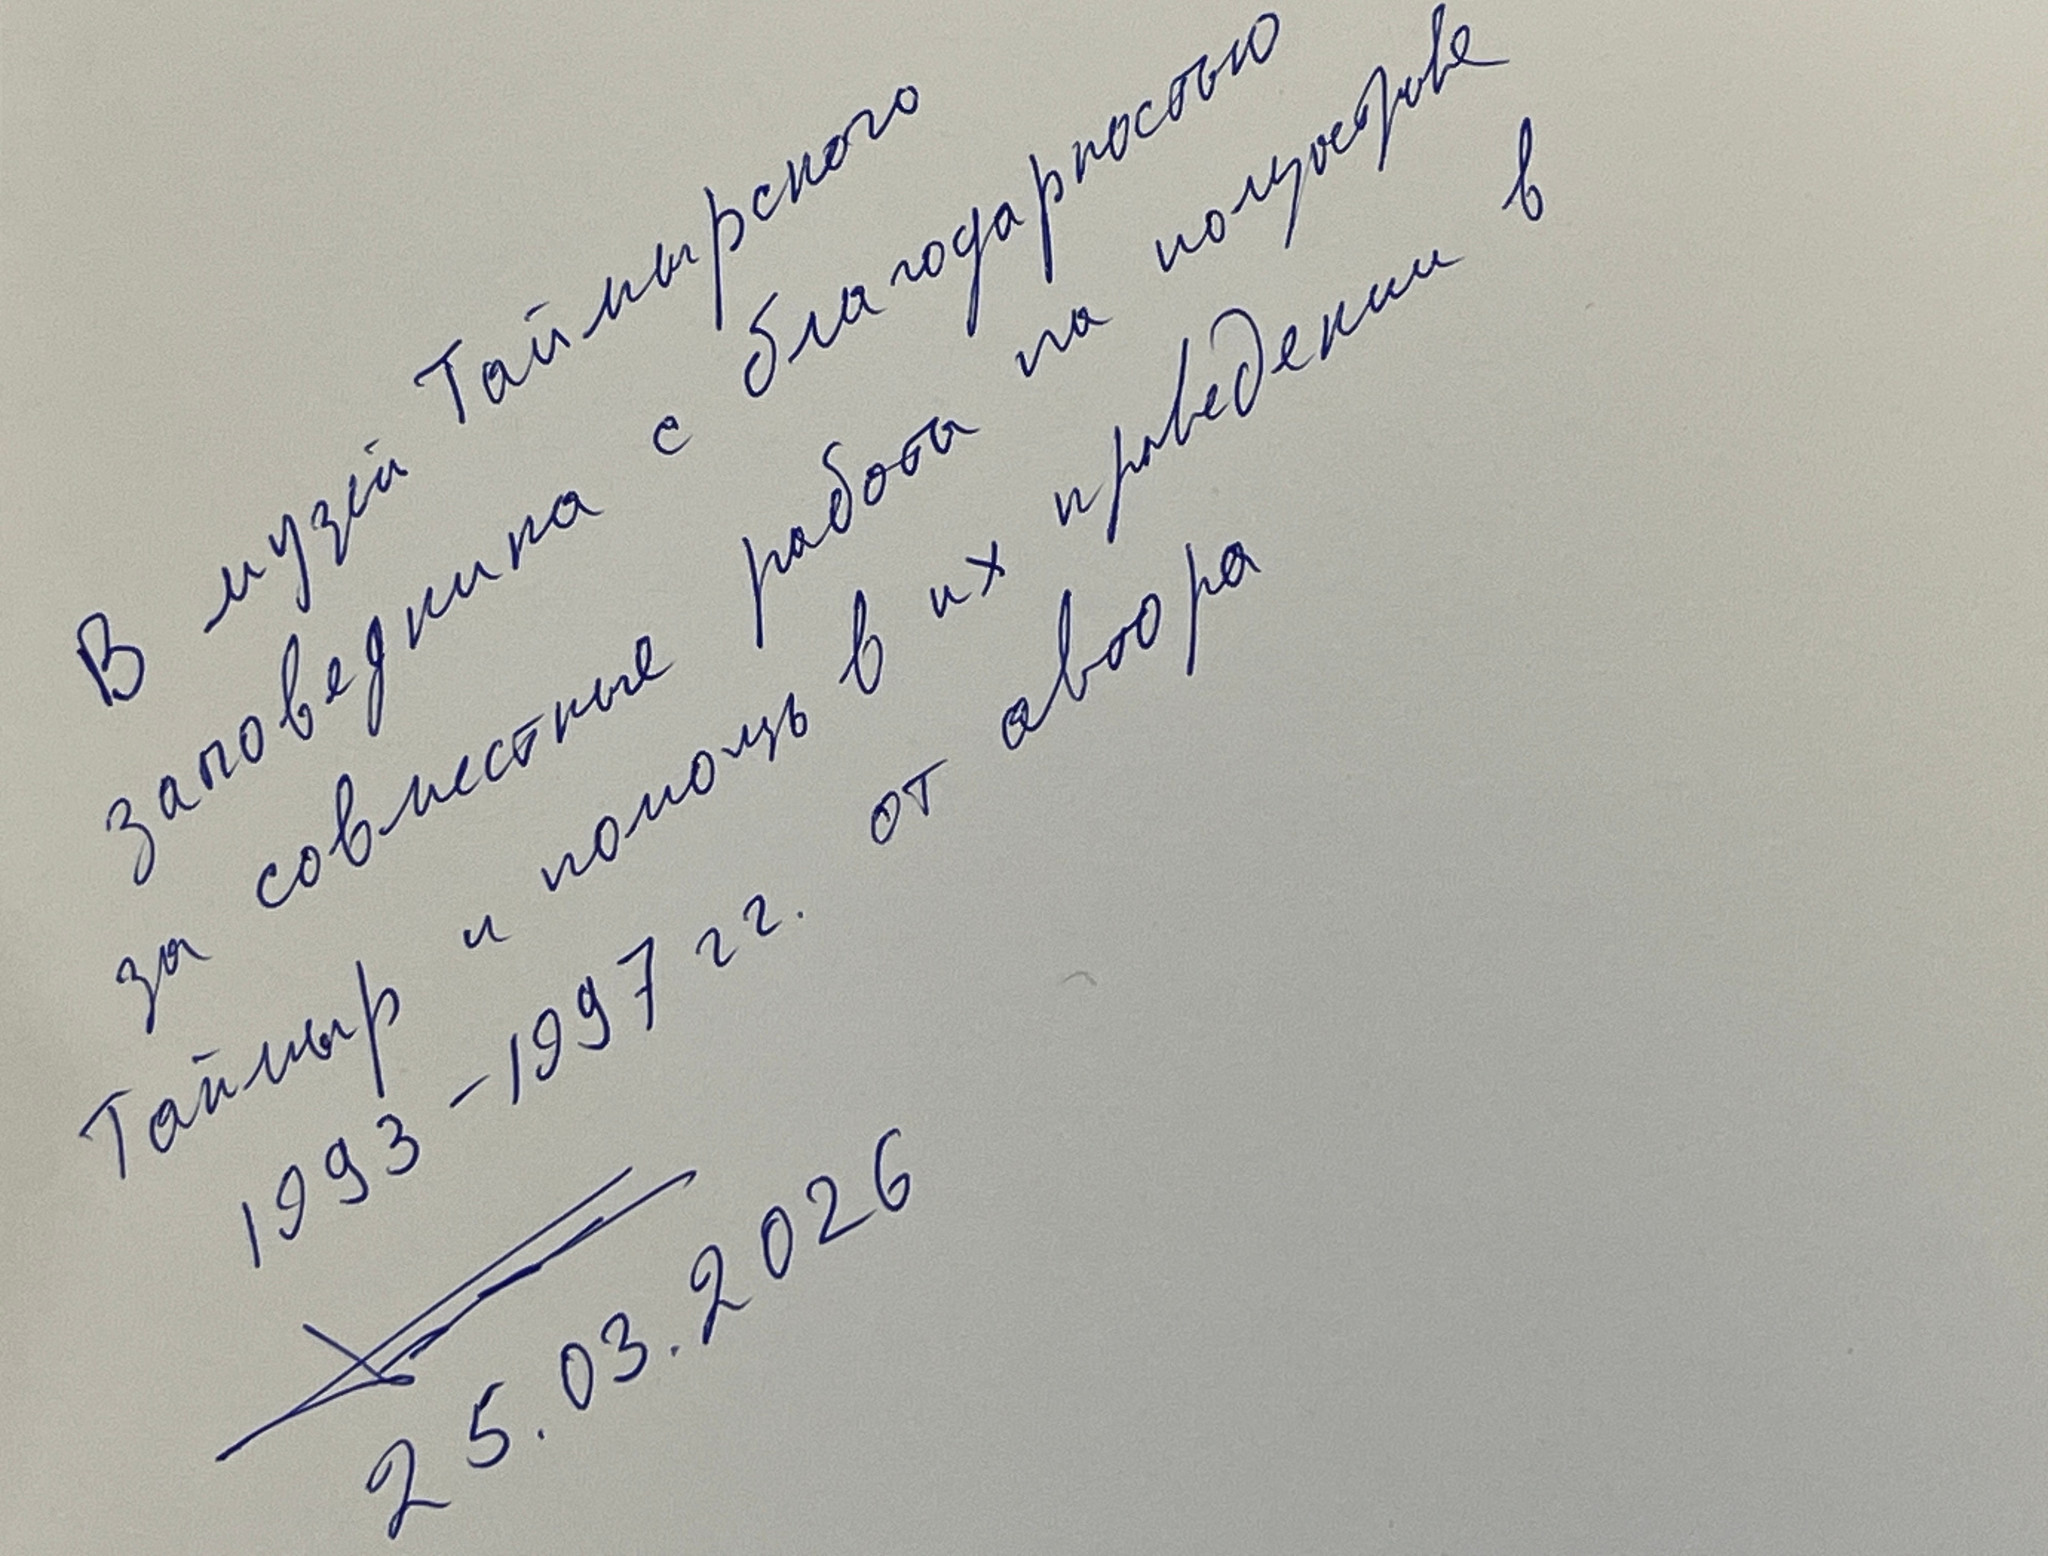 В музей Таймырского
заповедника с благодарностью
за совместные работы на полуострове
Таймыр и помощь в их проведении в
1993-1997 гг. от автора
25.03.2026